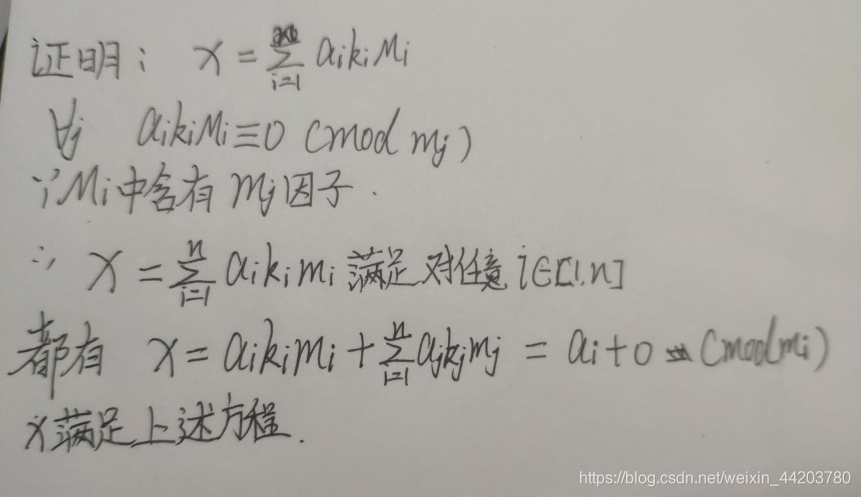 证明： x = ∑_{i=1} aikiMi
∀j aikiMi≡0 (mod mj)
∵Mi中含有 mj因子.
∴ x = ∑_{i=1}^{n} aikimi 满足 对任意 i∈[1,n]
都有 x = aikimi + ∑_{i=1}^{n} ajkjmj = ai+0 (mod mi)
x满足上述方程.
https://blog.csdn.net/weixin_44203780